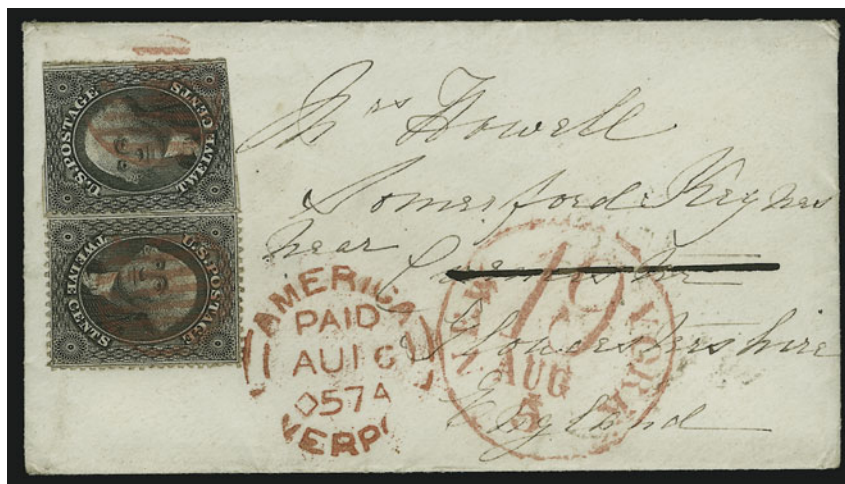 U.S. POSTAGE
TWELVE CENTS
U.S. POSTAGE
TWELVE CENTS
Mrs Howell
Somerford Keynes
near
Gloucestershire
England
AMERICA
PAID
AU 16
57A
VERP
19
AUG
5